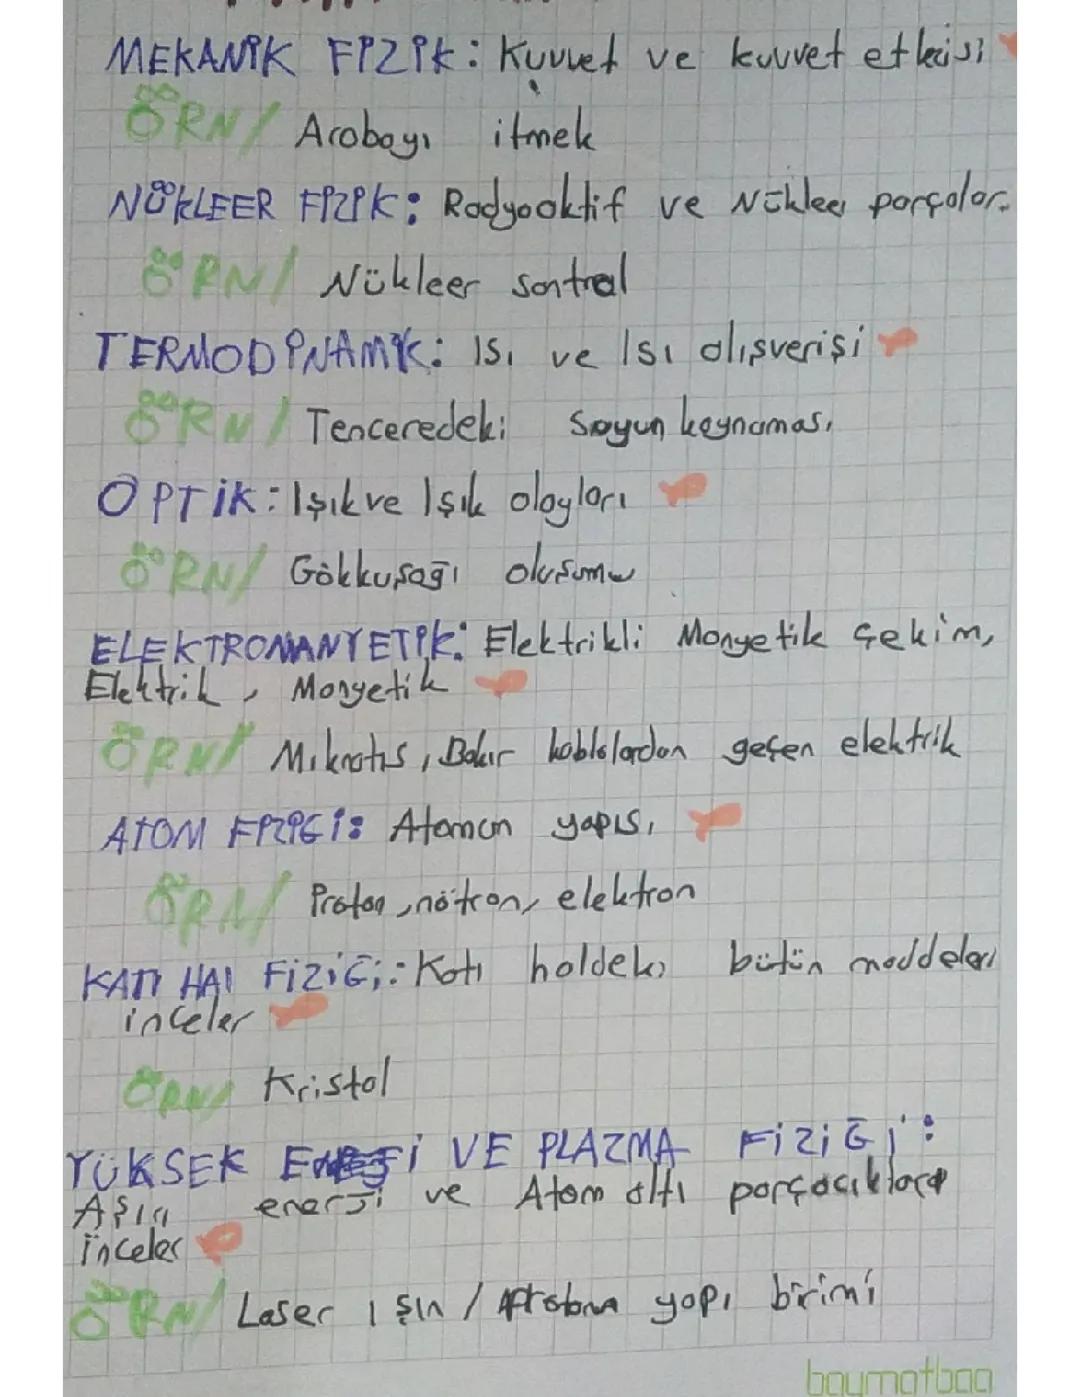 MEKANİK FİZİK: Kuvvet ve kuvvet etkisi
ÖRN/ Arabayı itmek
NÜKLEER FİZİK: Radyoaktif ve Nükleer parçalar.
ÖRN/ Nükleer santral
TERMODİNAMİK: Isı ve Isı alışverişi
ÖRN/ Tenceredeki Suyun kaynaması
OPTİK: Işık ve Işık olayları
ÖRN/ Gökkuşağı oluşumu
ELEKTROMANYETİK: Elektrikli Manyetik çekim,
Elektrik, Manyetik
ÖRN/ Mıknatıs, Bakır kablolardan geçen elektrik
ATOM FİZİĞİ: Atomun yapısı
ÖRN/ Proton, nötron, elektron
KATI HAL FİZİĞİ: Katı haldeki bütün maddeleri
inceler
ÖRN/ Kristal
YÜKSEK ENERJİ VE PLAZMA FİZİĞİ:
Aşırı enerji ve Atom altı parçacıkları
inceler
ÖRN/ Laser ışın / yapı birimi
baymatbaa